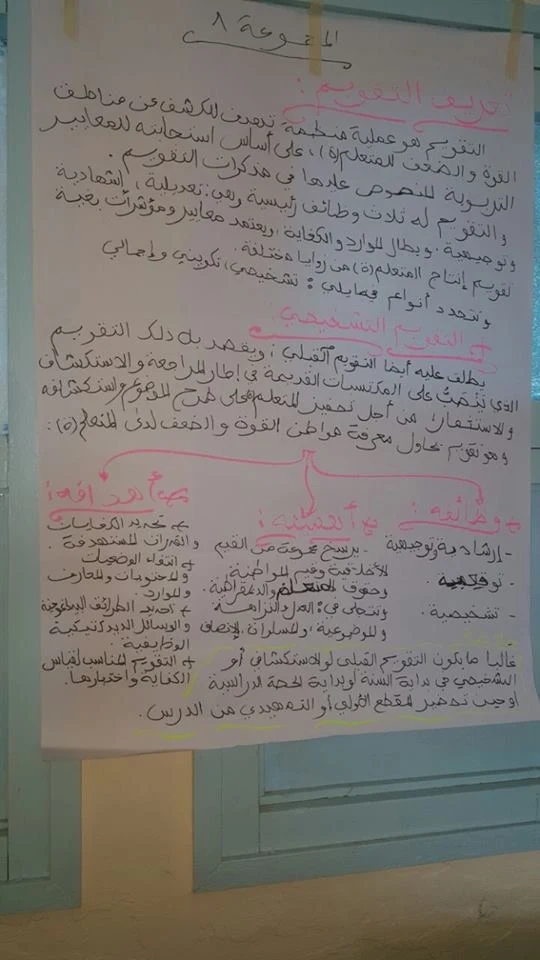 المجموعة 8
تعريف التقويم :
التقويم هو عملية منظمة تهدف للكشف عن مناطق
القوة والضعف للمتعلم(ة)، على أساس استجابته للمعايير
التربوية المنصوص عليها في مذكرات التقويم.
والتقويم له ثلاث وظائف رئيسية وهي: تعديلية، إشهادية
وتوجيهية. ويطال الموارد والكفاية، ويعتمد معايير ومؤشرات بغية
تقويم إنتاج المتعلم(ة) من زوايا مختلفة.
وتتحدد أنواعه فيمايلي: تشخيصي، تكويني وإجمالي
+ التقويم التشخيصي:
يطلق عليه أيضا التقويم القبلي، ويقصد به ذلك التقويم
الذي ينصب على المكتسبات القديمة في إطار المراجعة والاستكشاف
والاستثمار من أجل تحفيز المتعلم على طرح الموضوع واستكشافه
وهو تقويم يحاول معرفة مواطن القوة والضعف لدى المتعلم(ة):
+ وظائفه:
- إرشادية وتوجيهية
- توقعية
- تشخيصية.
+ أهميته:
- يرسخ مجموعة من القيم
الأخلاقية وقيم المواطنة
وحقوق والديمقراطية.
وتتجلى في: العدل والنزاهة
والموضوعية، والمساواة، الإنصاف
+ أهدافه:
+ تحديد الكفايات
والقدرات المستهدفة.
+ انتقاء الوضعيات
والمحتويات والمعارف
والموارد.
+ تحديد الطرائق البيداغوجية
والوسائل الديدكتيكية
الوظيفية.
+ التقويم المناسب لقياس
الكفاية واختبارها.
غالبا ما يكون التقويم القبلي أو الاستكشافي أو
التشخيصي في بداية السنة أو بداية الحصة الدراسية
أو حين تحضير المقطع الأولي أو التمهيدي من الدرس.